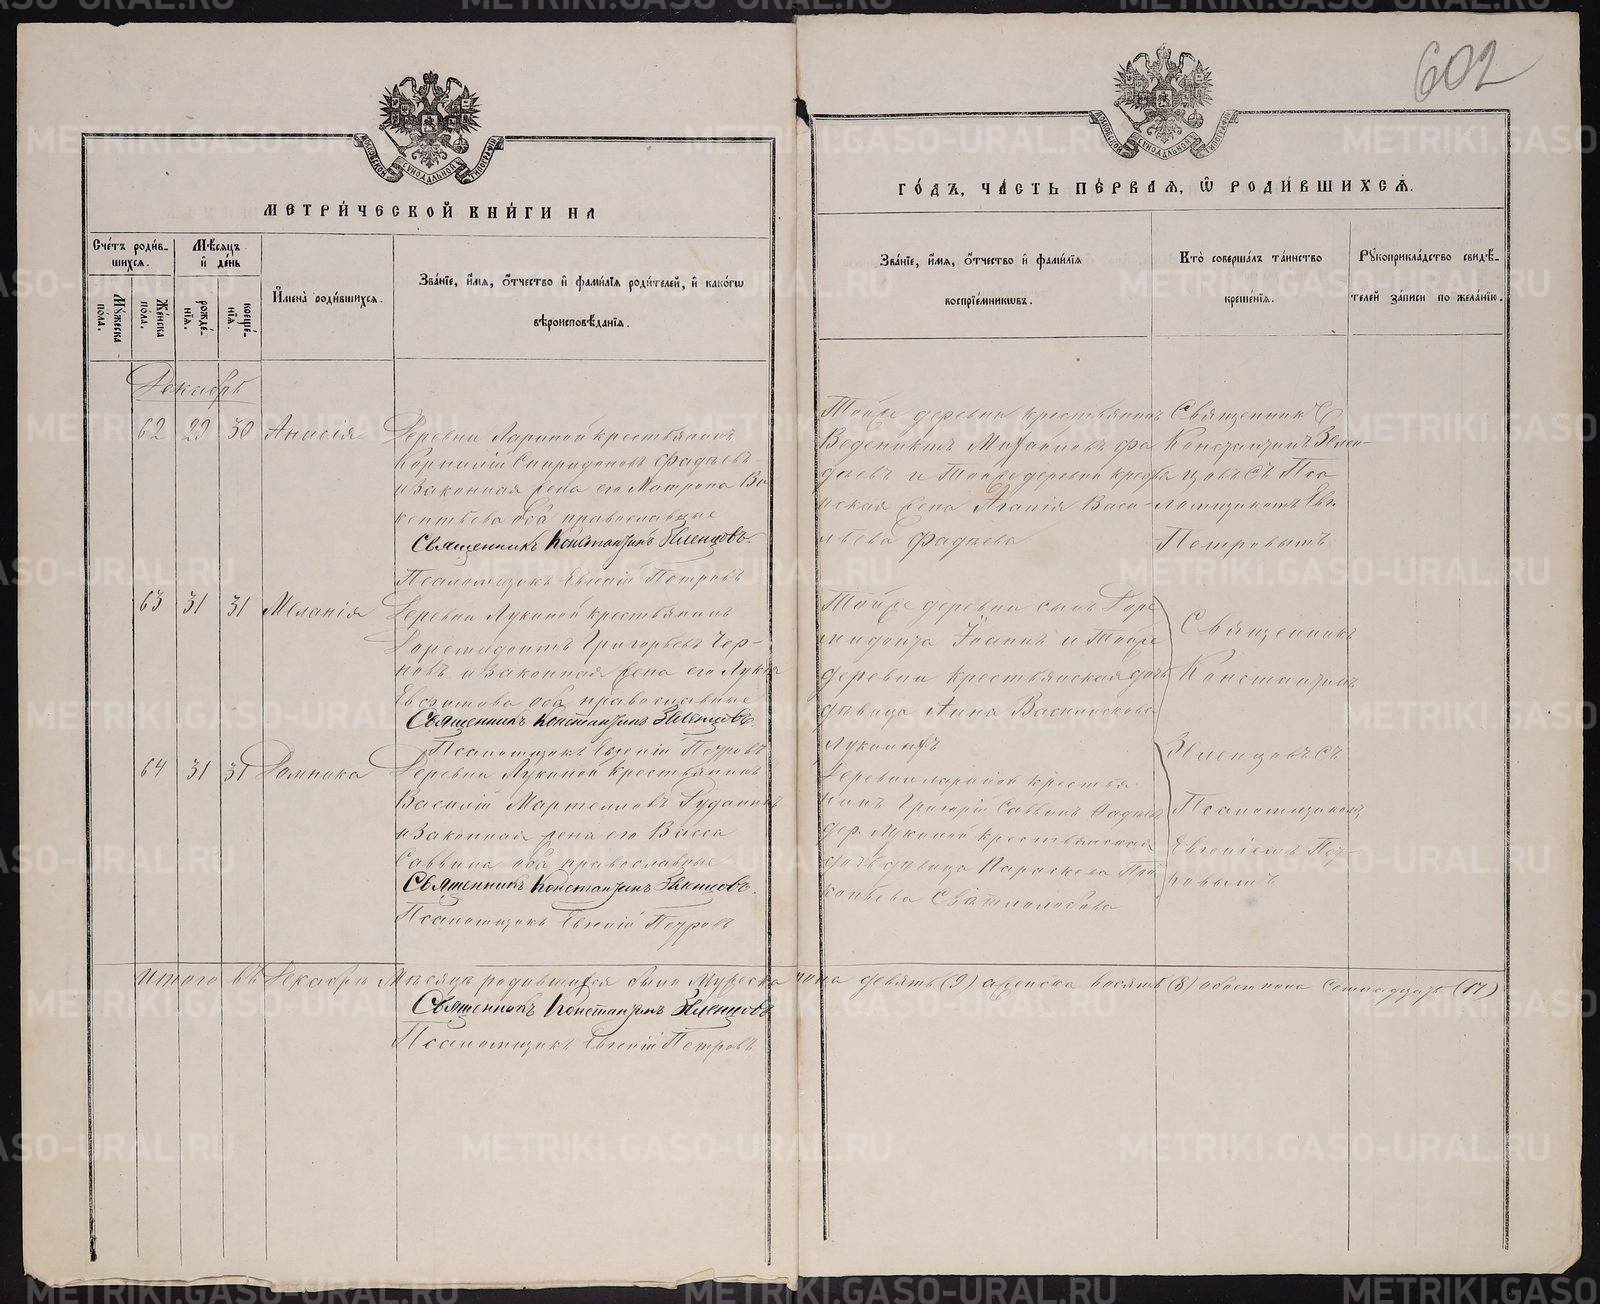 602
МОСКОВСКОЙ СѴНОДАЛЬНОЙ ТИПОГРАФІИ
МОСКОВСКОЙ СѴНОДАЛЬНОЙ ТИПОГРАФІИ
МЕТРИ́ЧЕСКОЙ КНИ́ГИ НА
ГО́ДЪ, ЧА́СТЬ ПЕ́РВАЯ, Ѡ РОДИ́ВШИХСЯ.
Сче́тъ роди́в-
шихся.
Мꙋ́жеска по́ла.
Же́нска по́ла.
Мѣ́сяцъ и де́нь
рожде́-
нїя.
креще́-
нїя.
И҆мена̀ роди́вшихся.
Зва́нїе, и҆́мя, ѻ҆́тчество и҆ фами́лїя роди́телей, и҆ како́гѡ
вѣроисповѣ́данїя.
Зва́нїе, и҆́мя, ѻ҆́тчество и҆ фами́лїя
воспрїе́мникѡвъ.
Кто̀ соверша́лъ та́инство
креще́нїя.
Рꙋкоприкла́дство свидѣ́-
телей за́писи по жела́нїю.
Декабрь
62 29 30 Анисія
Деревни Лариной крестьянинъ
Корнилій Спиридоновъ Фадѣевъ
и законная жена его Матрона Ви
кентьева оба православные
Священникъ Константинъ Зеленцовъ.
Псаломщикъ Евгеній Петровъ
Той же деревни крестьянинъ
Ведениктъ Фа
дѣевъ и той же деревни крестья
нская жена Агапія Васи
льева Фадѣева
Священникъ
Константинъ Зелен-
цовъ съ Пса
ломщикомъ Евг.
Петровымъ
63 31 31 Меланія
Деревни Лукиной крестьянинъ
Доремидонтъ Григорьевъ Чер-
новъ и законная жена его Лукія
Евсѣитова оба православные
Священникъ Константинъ Зеленцовъ.
Псаломщикъ Евгеній Петровъ
Той же деревни сынъ Доре
мидонта Іоаннъ и той же
деревни крестьянская дочь
дѣвица Анна
Священникъ
Константинъ
Зеленцовъ съ
Псаломщикомъ
Евгеніемъ Пет-
ровымъ
64 31 31 Домника
Деревни Лукиной крестьянинъ
Василій
и законная жена его Васса
Саввина оба православные
Священникъ Константинъ Зеленцовъ.
Псаломщикъ Евгеній Петровъ
Деревни Лариной крестья
нинъ Григорій Саввинъ
дер. Лукиной крестьянская
дочь дѣвица Параскева Про
копьева
Итого въ Декабрѣ Мѣсяцѣ родившихся было мужеска пола девять (9) а женска восемь (8) обоего пола семнадцать (17)
Священникъ Константинъ Зеленцовъ
Псаломщикъ Евгеній Петровъ
METRIKI.GASO-URAL.RU